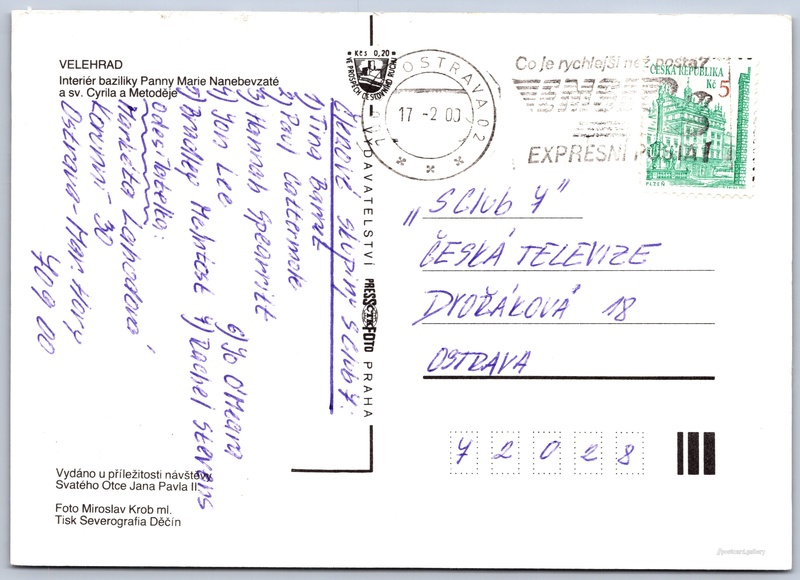 VELEHRAD
Interiér baziliky Panny Marie Nanebevzaté
a sv. Cyrila a Metoděje
Členové skupiny S Club 7:
1) Tina Barret
2) Paul Cattermole
3) Hannah Spearritt
4) Jon Lee
5) Bradley McIntosh
6) Jo O'Meara
7) Rachel Stevens
odesílatelka:
Markéta Lahodová
Korunní 30
Ostrava-Mar. Hory
709 00
Vydáno u příležitosti návštěvy
Svatého Otce Jana Pavla II.
Foto Miroslav Krob ml.
Tisk Severografia Děčín
Kčs 0,20
VE PROSPĚCH ČESTOVNÍHO RUCHU
VYDAVATELSTVÍ PRESSFOTO PRAHA
OSTRAVA 02
17 -2 00
Co je rychlejší než pošta?
EMS
EXPRESNÍ POŠTA!
ČESKÁ REPUBLIKA
Kč 5
PLZEŇ
„S Club 7"
ČESKÁ TELEVIZE
DVOŘÁKOVA 18
OSTRAVA
7 2 0 2 8
//postcard.gallery